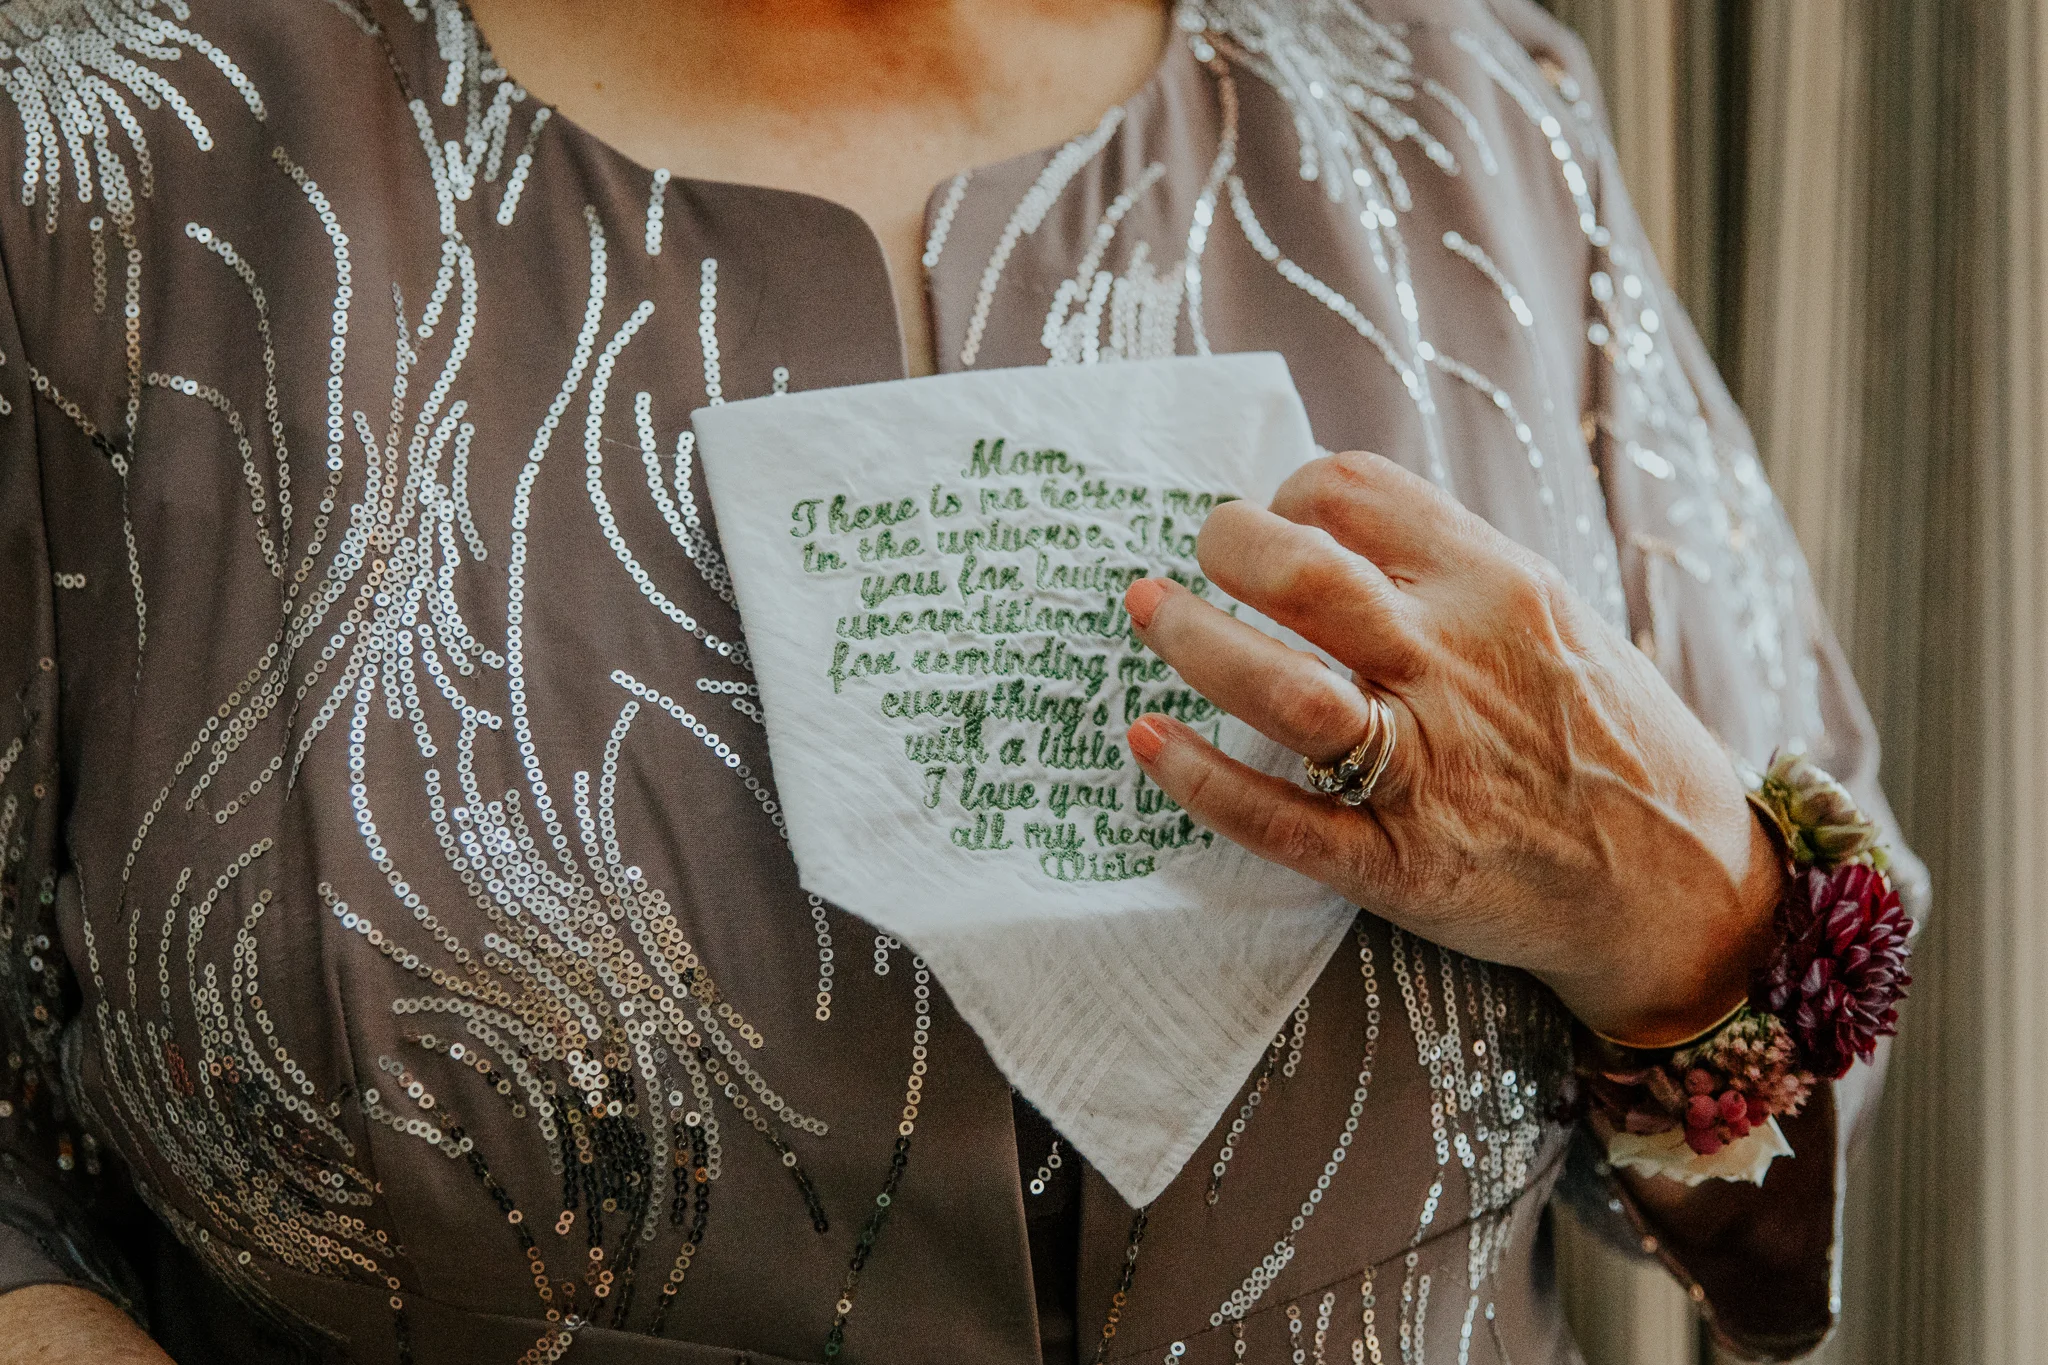 Mom,
There is no better mom
in the universe. Tha
you for loving me
unconditionally
for reminding me
everything's better
with a little
I love you wi
all my heart,
Alicia